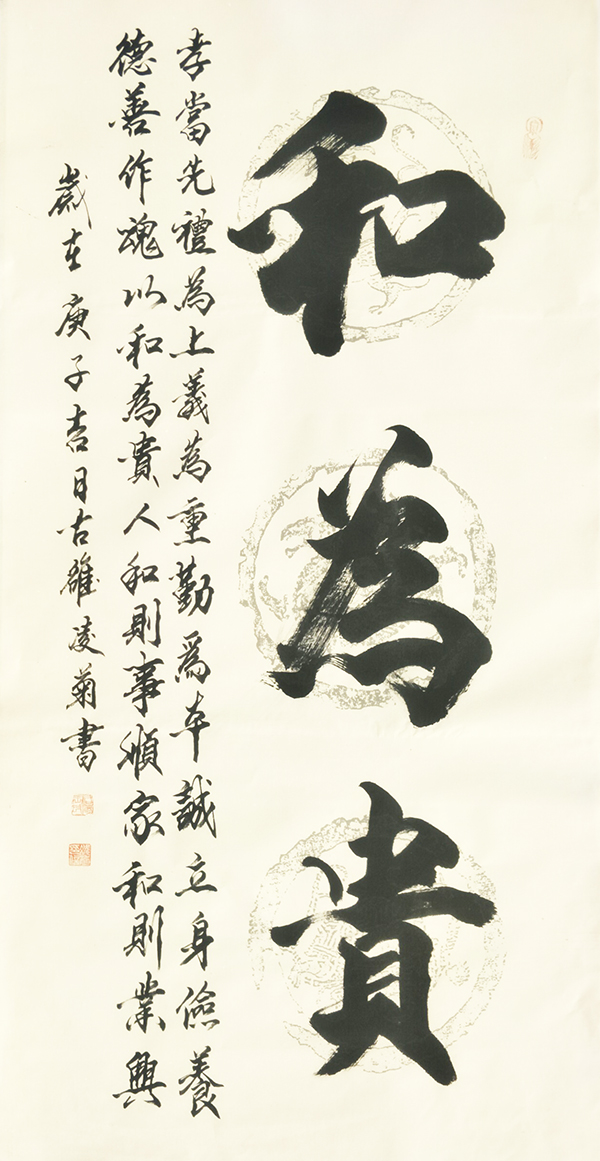 和為貴
孝當先禮為上義為重勤爲本誠立身儉養
德善作魂以和為貴人和則事順家和則業興
歲在庚子吉日古雒凌菊書